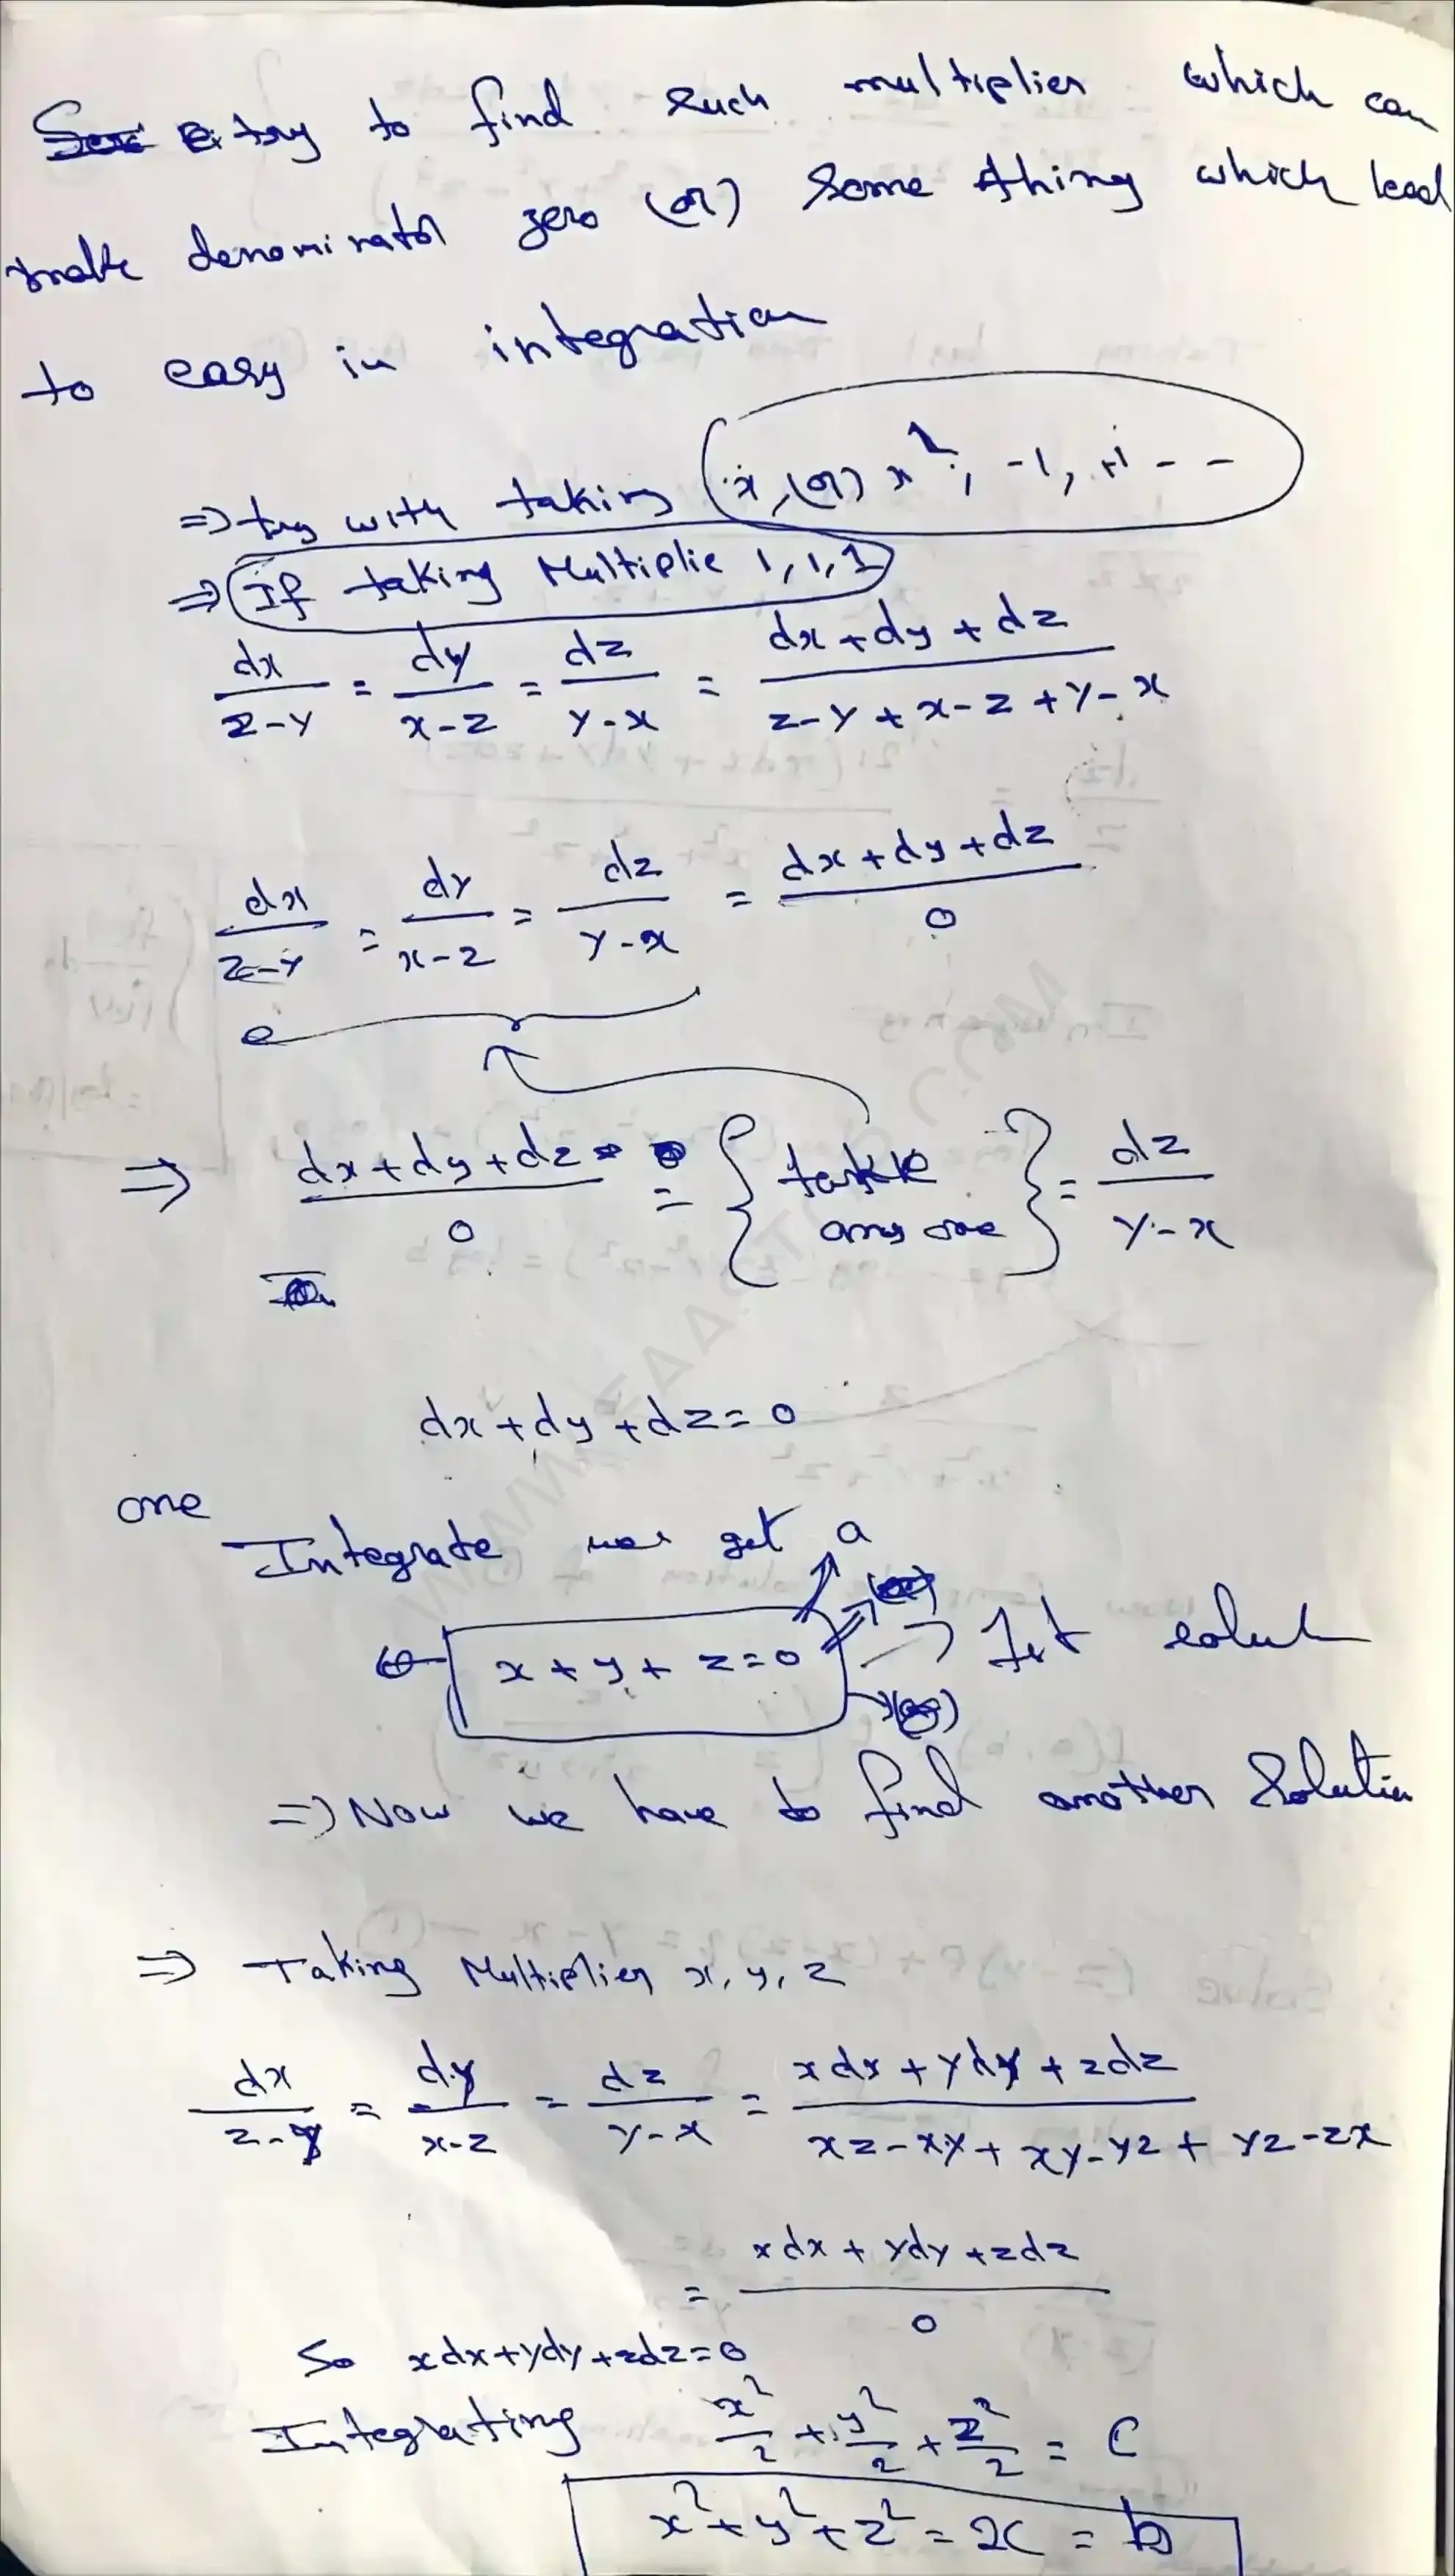 try to find such multiplier which can
make denominator zero (or) some thing which lead
to easy in integration
⇒ try with taking x, (or) x², -1, +1 - -
⇒ If taking Multiplie 1, 1, 1
dx/(z-y) = dy/(x-z) = dz/(y-x) = (dx+dy+dz)/(z-y+x-z+y-x)
dx/(z-y) = dy/(x-z) = dz/(y-x) = (dx+dy+dz)/0
⇒ (dx+dy+dz)/0 = { take any one } = dz/(y-x)
dx+dy+dz=0
one
Integrate we get a
x+y+z=0 → Ist solut
⇒ Now we have to find another Solution
⇒ Taking Multiplier x, y, z
dx/(z-y) = dy/(x-z) = dz/(y-x) = (xdx+ydy+zdz)/(xz-xy+xy-yz+yz-zx)
= (xdx+ydy+zdz)/0
So xdx+ydy+zdz=0
Integrating x²/2 + y²/2 + z²/2 = C
x²+y²+z² = 2C = b